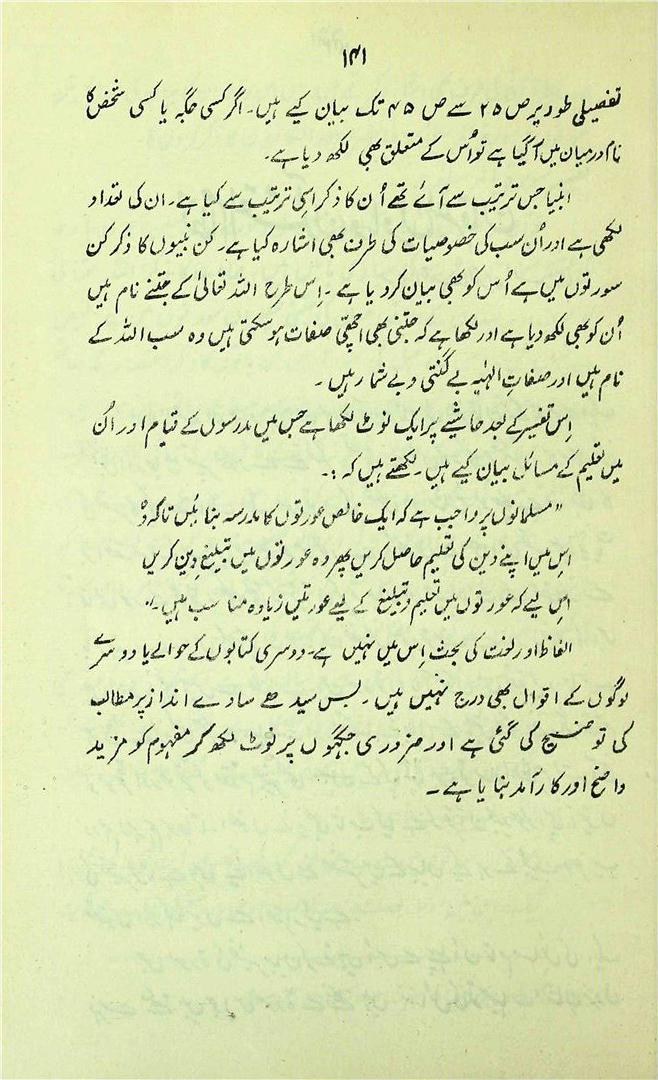 ۱۴۱
تفصیلی طور پر ص ۲۵ سے ص ۴۵ تک بیان کیے ہیں۔ اگر کسی جگہ یا کسی شخص کا
نام درمیان میں آ گیا ہے تو اُس کے متعلق بھی لکھ دیا ہے۔
انبیا جس ترتیب سے آئے تھے اُن کا ذکر اسی ترتیب سے کیا ہے۔ ان کی تعداد
لکھی ہے اور اُن سب کی خصوصیات کی طرف بھی اشارہ کیا ہے۔ کن نبیوں کا ذکر کن
سورتوں میں ہے اُس کو بھی بیان کر دیا ہے ۔ اِس طرح اللہ تعالیٰ کے جتنے نام ہیں
اُن کو بھی لکھ دیا ہے اور لکھا ہے کہ جتنی بھی اچھّی صفات ہو سکتی ہیں وہ سب اللہ کے
نام ہیں اور صفاتِ الہٰیہ بے گنتی و بے شمار ہیں ۔
اِس تفسیر کے بعد حاشیے پر ایک نوٹ لکھا ہے جس میں مدرسوں کے قیام اور اُن
میں تعلیم کے مسائل بیان کیے ہیں۔ لکھتے ہیں کہ :۔
"مسلمانوں پر واجب ہے کہ ایک خالص عورتوں کا مدرسہ بنائیں تاکہ وُہ
اس میں اپنے دین کی تعلیم حاصل کریں پھر وہ عورتوں میں تبلیغِ دین کریں
اس لیے کہ عورتوں میں تعلیم و تبلیغ کے لیے عورتیں زیادہ مناسب ہیں۔"
الفاظ اور لغت کی بحث اِس میں نہیں ہے۔ دوسری کتابوں کے حوالے یا دوسرے
لوگوں کے اقوال بھی درج نہیں ہیں ۔ بس سیدھے سادے انداز پر مطالب
کی توضیح کی گئی ہے اور ضروری جگہوں پر نوٹ لکھ کر مفہوم کو مزید
واضح اور کارآمد بنایا ہے ۔